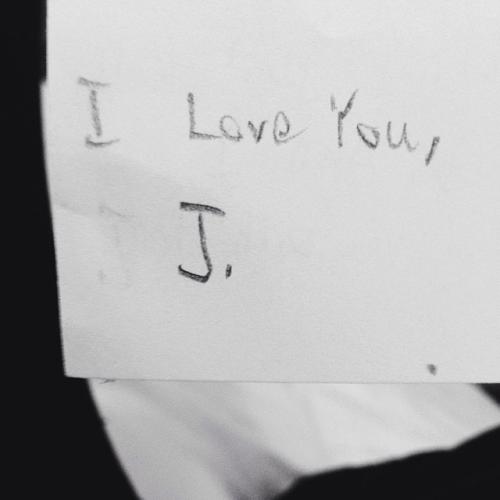 I Love You,
J.